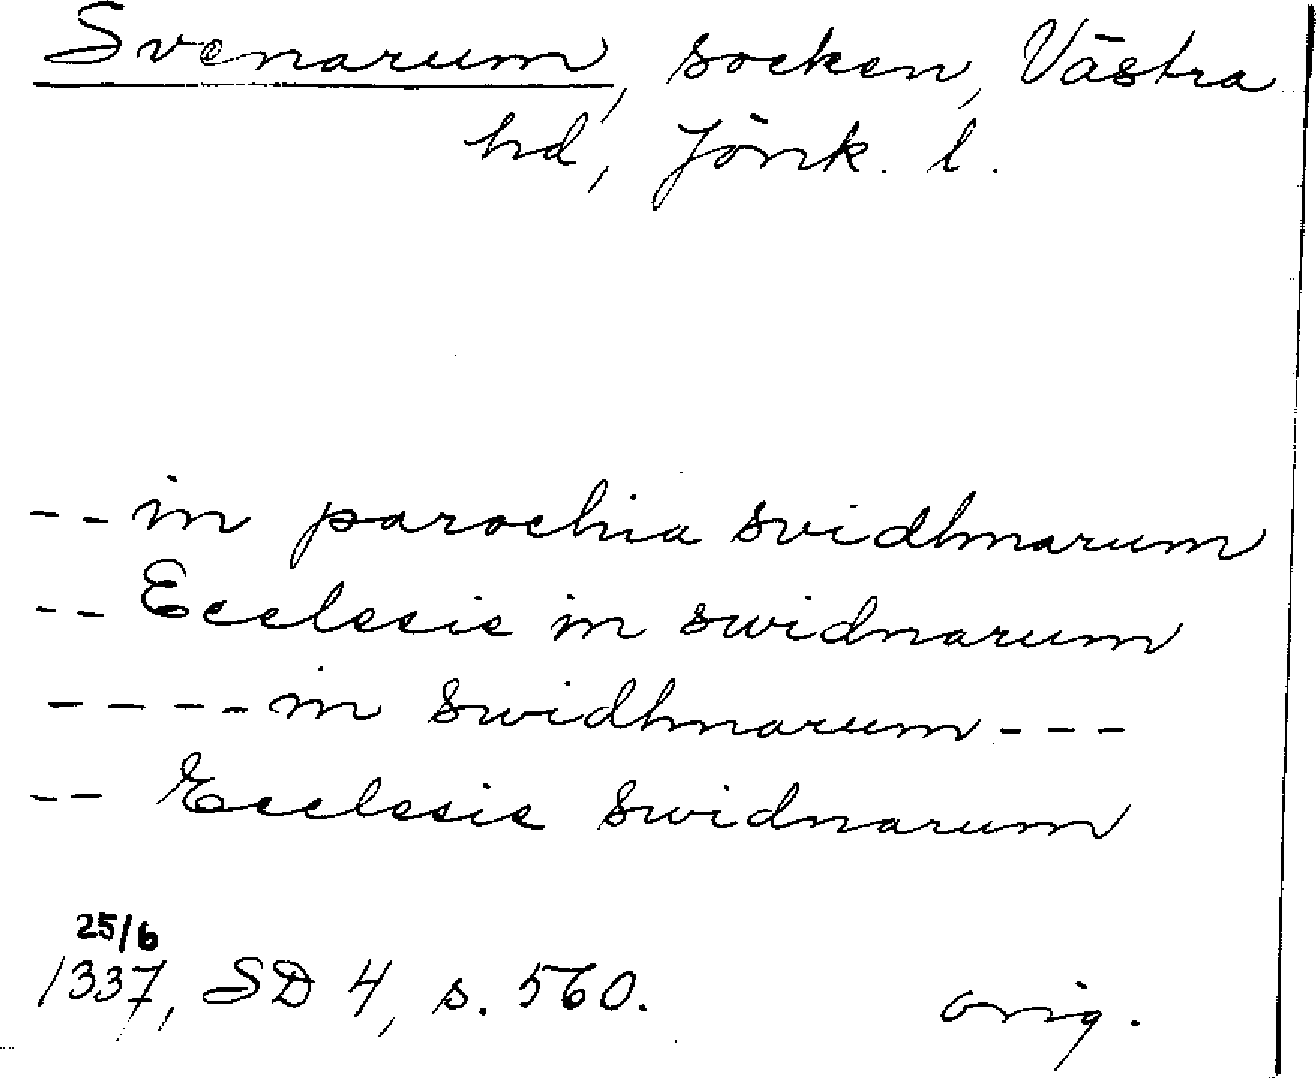 Svenarum, socken, Västra
hd, Jönk. l.
-- in parochia svidhnarum
-- Ecclesie in swidnarum
---- in Swidhnarum ---
-- Ecclesie Swidnarum
25/6
1337, SD 4, s. 560. orig.